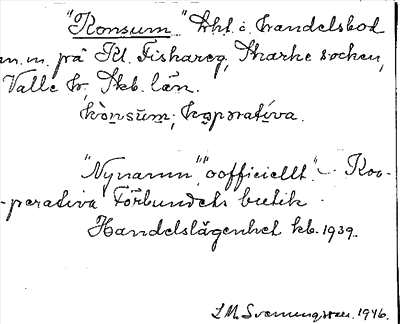 "Konsum" trkt. o. handelsbod
m.m. på Kl. Fiskareg, Skarke socken,
Valle hd, Skb. län.
kònsùm; kɷperatíva.
"Nynamn", "oofficiellt". – Koo-
-perativa Förbundets butik.
Handelslägenhet kb. 1939.
I.M. Svenningsson. 1946.